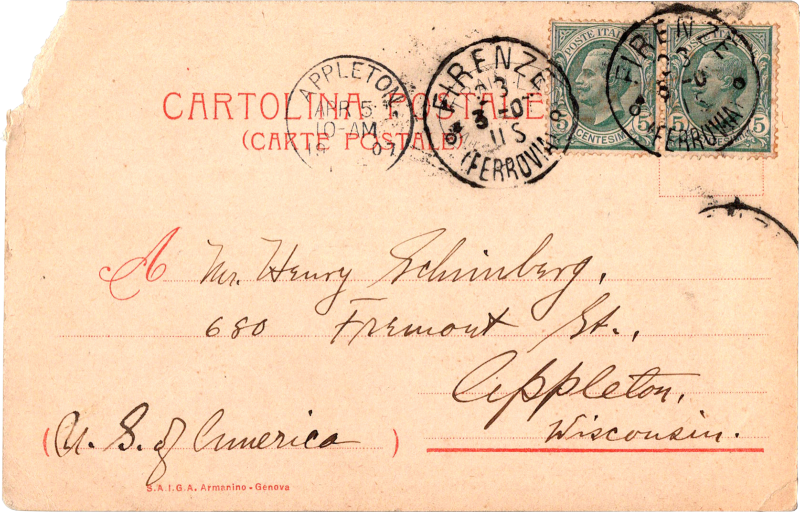 CARTOLINA POSTALE
(CARTE POSTALE)
APPLETON
APR 5
10-AM
07
FIRENZE
23
3-07
11 S
(FERROVIA)
POSTE ITAL
5 CENTESIMI 5
FIRENZE
(FERROVIA)
5 5
A Mr. Henry Schinberg,
680 Fremont St.,
Appleton,
Wisconsin.
(U. S. of America)
S.A.I.G.A. Armanino - Genova